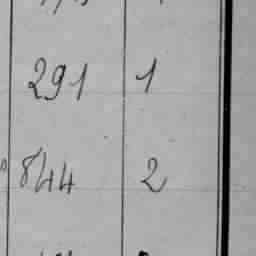 291 1
844 2